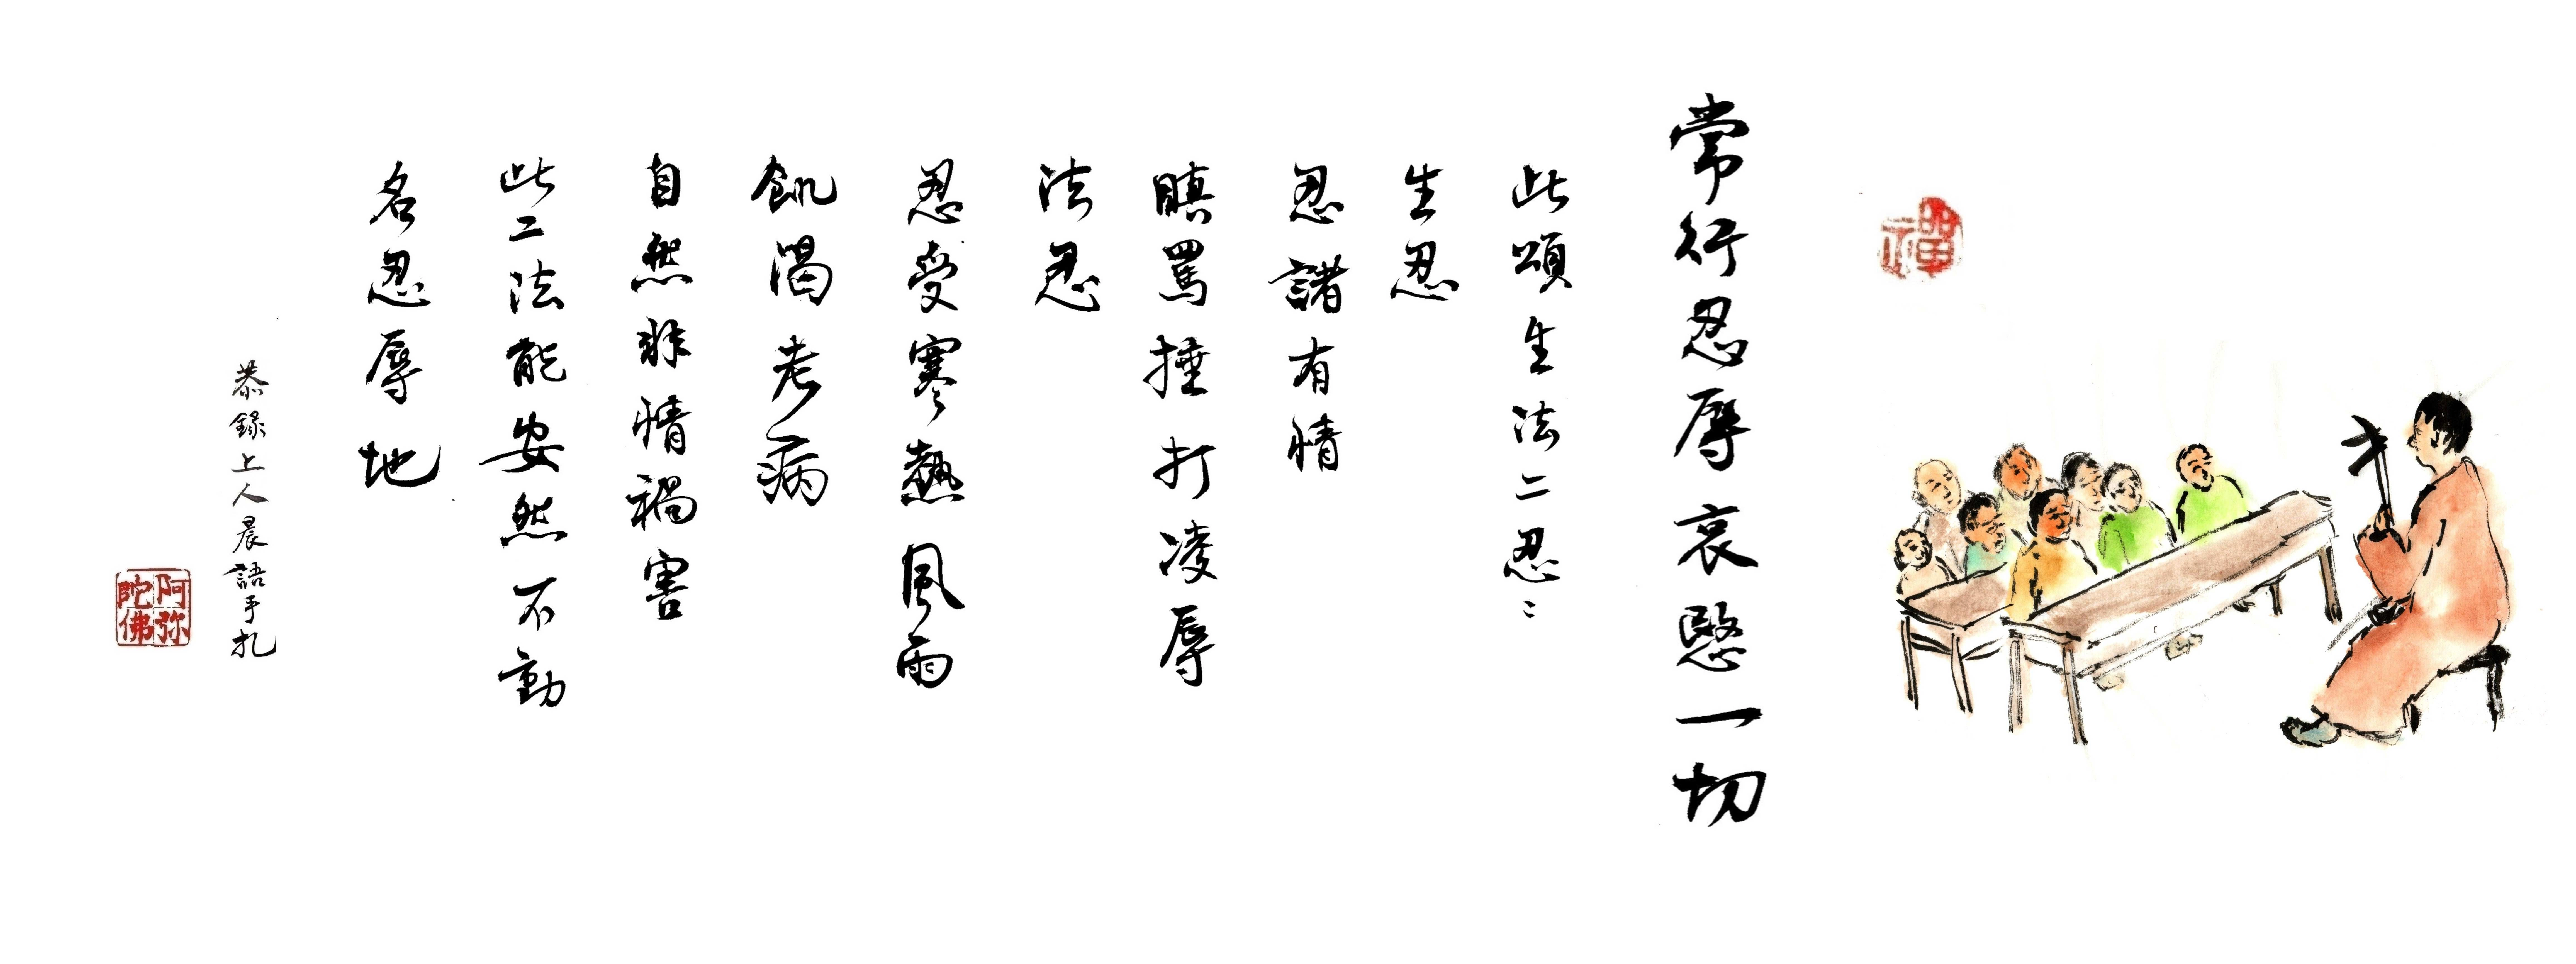 禪
常行忍辱哀愍一切
此頌生法二忍〻
生忍
忍諸有情
瞋罵捶打凌辱
法忍
忍受寒熱風雨
飢渴老病
自然非情禍害
此二法能安然不動
名忍辱地
恭錄上人晨語手札
阿弥
陀佛